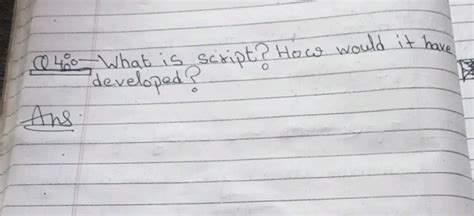 Q4:- What is script? How would it have
developed?
Ans.